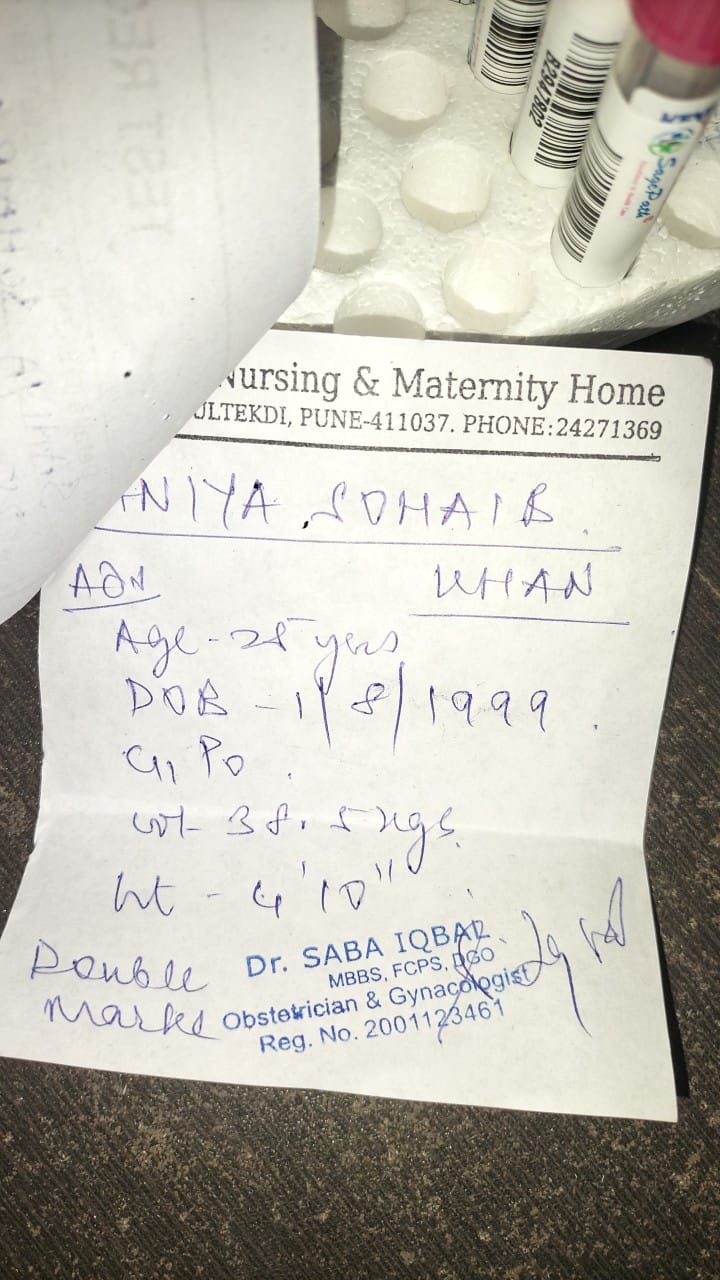 TEST REC
B2947802
SagePath
Nursing & Maternity Home
ULTEKDI, PUNE-411037. PHONE:24271369
NIYA SOHAIB
KHAN
Age - 25 years
DOB - 1/8/1999
G1 P0
wt- 38.5 kgs
ht - 4'10"
Double
Marker
Dr. SABA IQBAL
MBBS, FCPS, DGO
Obstetrician & Gynacologist
Reg. No. 2001123461